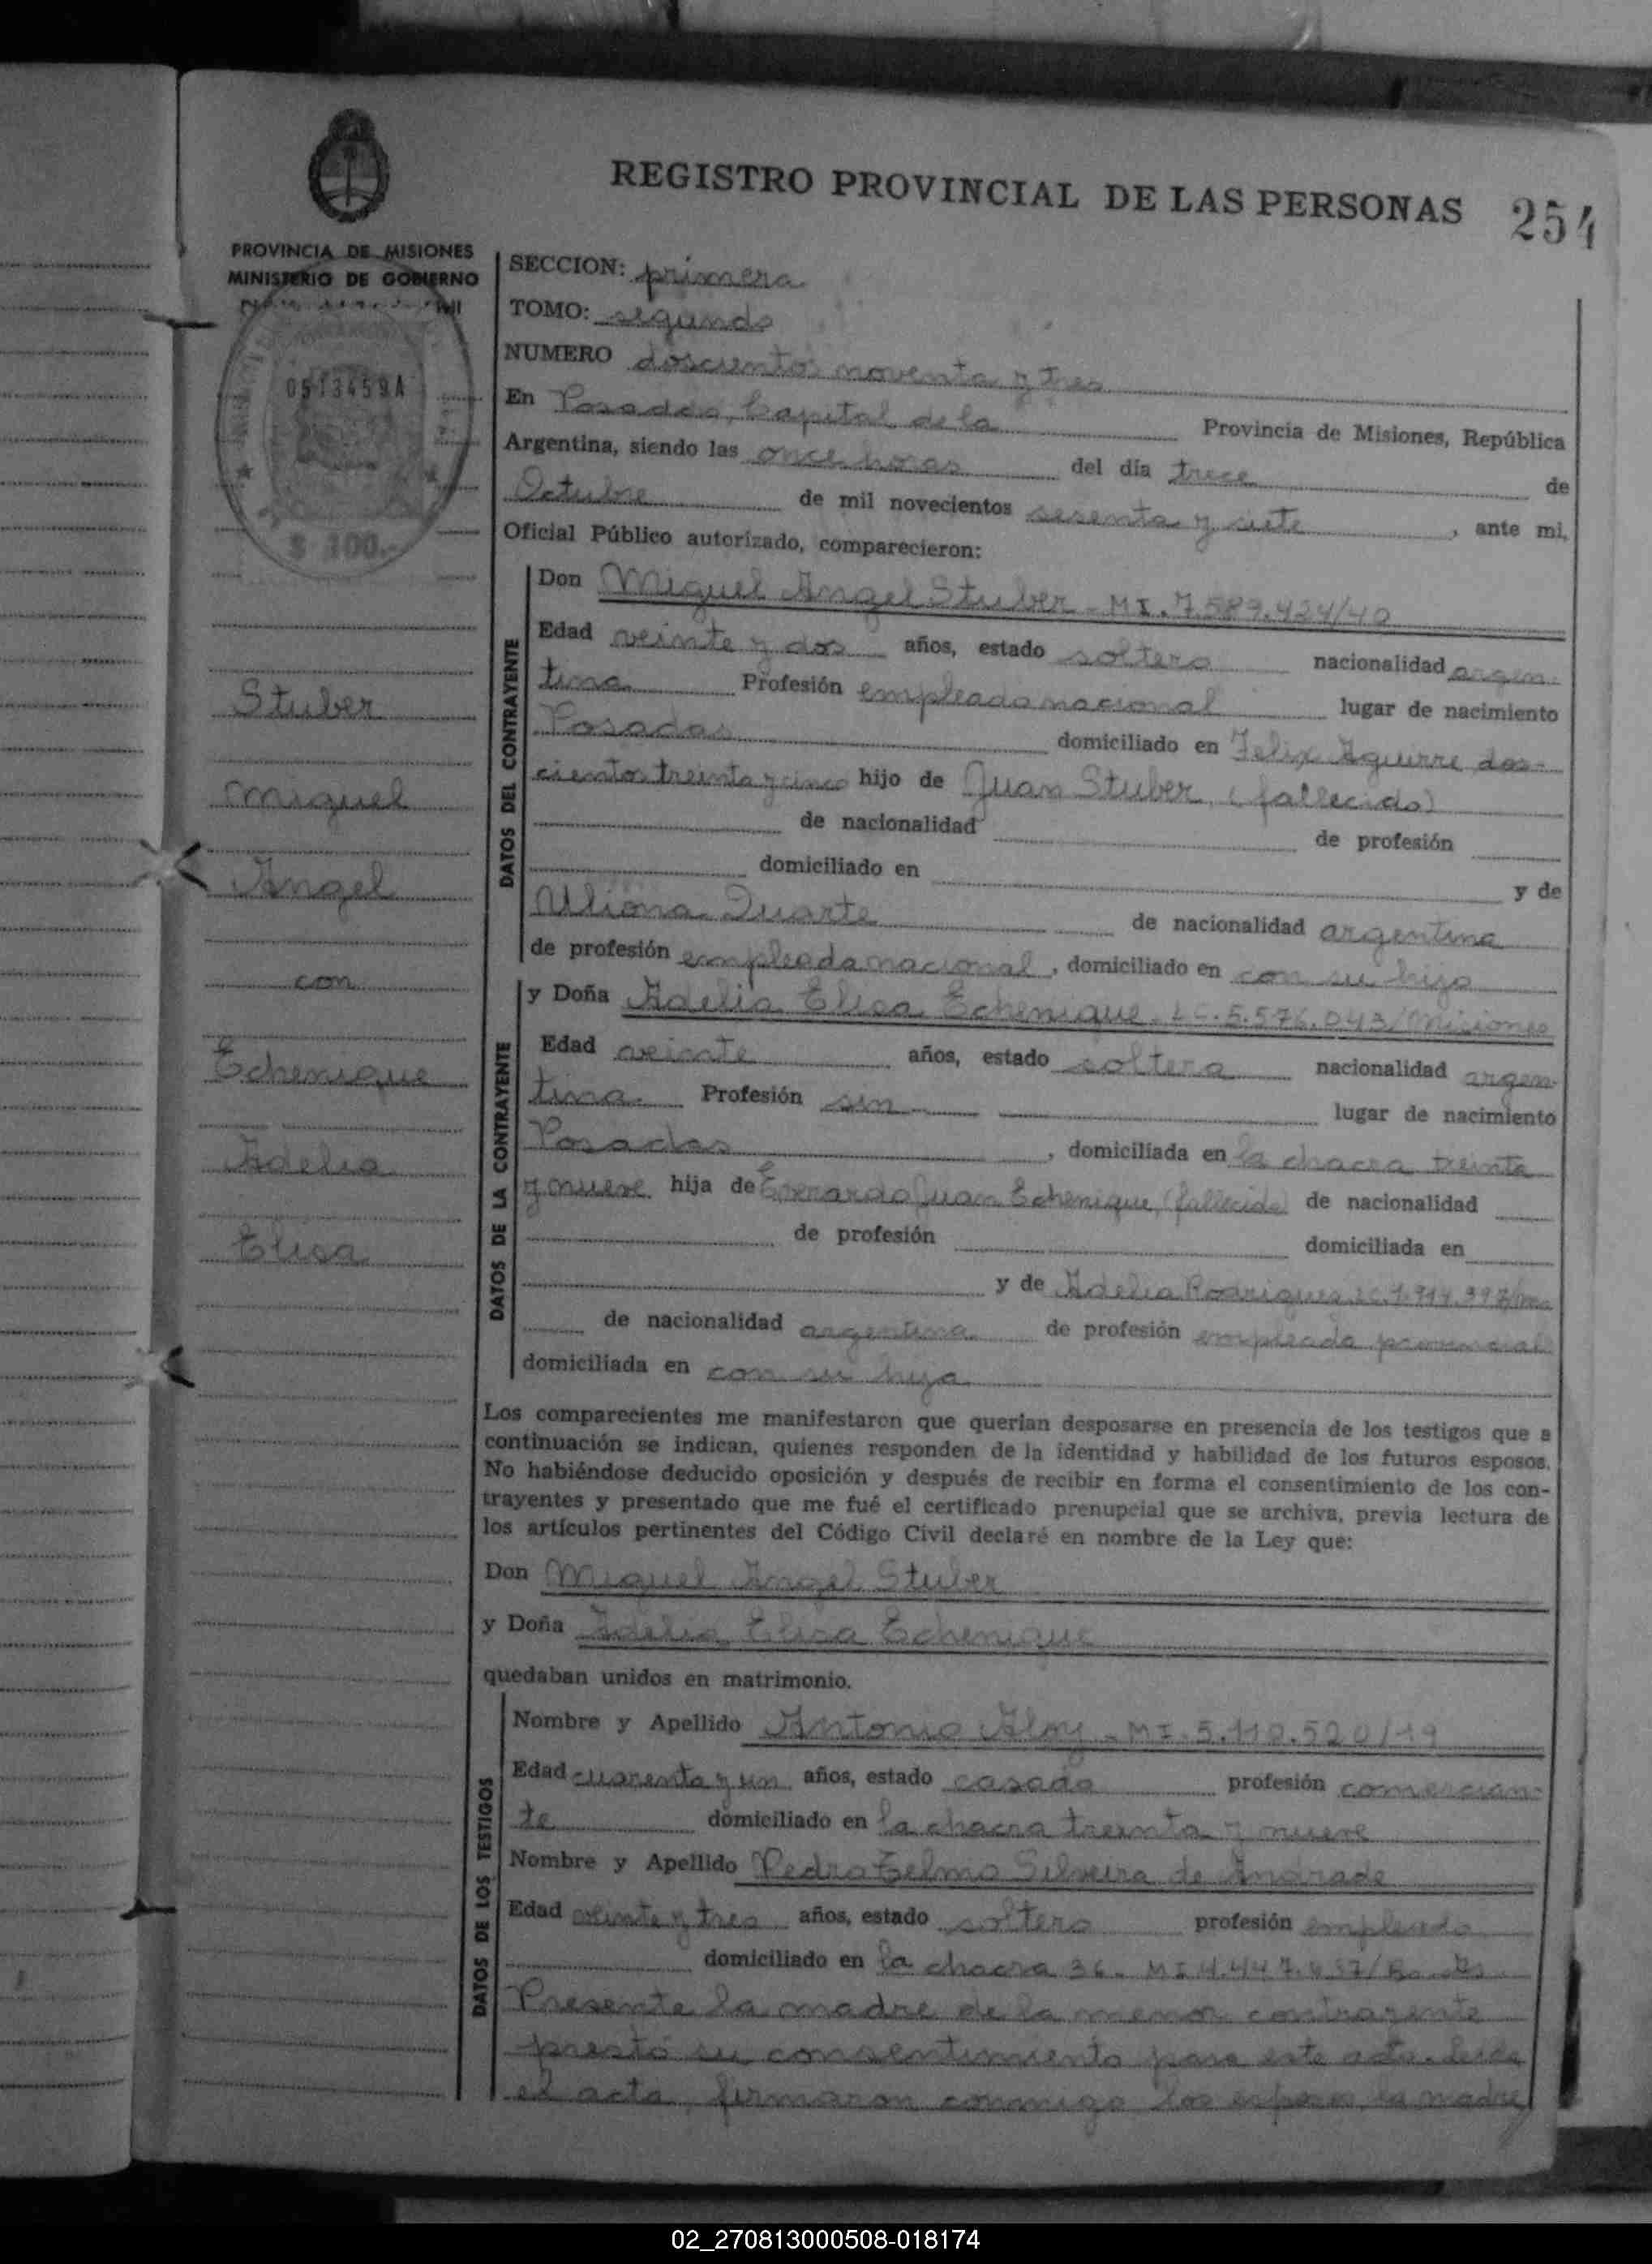 REGISTRO PROVINCIAL DE LAS PERSONAS 254
PROVINCIA DE MISIONES
MINISTERIO DE GOBIERNO
0513459A
$ 100.-
Stuber
Miguel
Angel
con
Echenique
Adelia
Elisa
SECCION: primera
TOMO: segundo
NUMERO doscientos noventa y tres
En Posadas, Capital de la Provincia de Misiones, República
Argentina, siendo las once horas del día trece de
Octubre de mil novecientos sesenta y siete, ante mi,
Oficial Público autorizado, comparecieron:
DATOS DEL CONTRAYENTE
Don Miguel Angel Stuber - MI. 7.589.424/40
Edad veinte y dos años, estado soltero nacionalidad argen-
tina Profesión empleado nacional lugar de nacimiento
Posadas domiciliado en Felix Aguirre dos-
cientos treinta y cinco hijo de Juan Stuber, (fallecido)
de nacionalidad de profesión
domiciliado en y de
Duarte de nacionalidad argentina
de profesión empleada nacional, domiciliado en con su hijo
DATOS DE LA CONTRAYENTE
y Doña Adelia Elisa Echenique. LC. 5.576.043/Misiones
Edad veinte años, estado soltera nacionalidad argen-
tina Profesión sin lugar de nacimiento
Posadas, domiciliada en la chacra treinta
y nueve hija de Everardo Juan Echenique, (fallecido) de nacionalidad
de profesión domiciliada en
y de Adelia Rodriguez
de nacionalidad argentina de profesión empleada provincial
domiciliada en con su hija
Los comparecientes me manifestaron que querian desposarse en presencia de los testigos que a
continuación se indican, quienes responden de la identidad y habilidad de los futuros esposos.
No habiéndose deducido oposición y después de recibir en forma el consentimiento de los con-
trayentes y presentado que me fué el certificado prenupcial que se archiva, previa lectura de
los artículos pertinentes del Código Civil declaré en nombre de la Ley que:
Don Miguel Angel Stuber
y Doña Adelia Elisa Echenique
quedaban unidos en matrimonio.
DATOS DE LOS TESTIGOS
Nombre y Apellido Antonio Aloy - MI. 5.110.520/19
Edad cuarenta y un años, estado casado profesión comercian-
te domiciliado en la chacra treinta y nueve
Nombre y Apellido Pedro Telmo Silveira de Andrade
Edad veinte y tres años, estado soltero profesión empleado
domiciliado en la chacra 36. MI
Presente la madre de la menor contrayente
prestó su consentimiento para este acto. Leida
el acta, firmaron conmigo los esposos, la madre
02_270813000508-018174